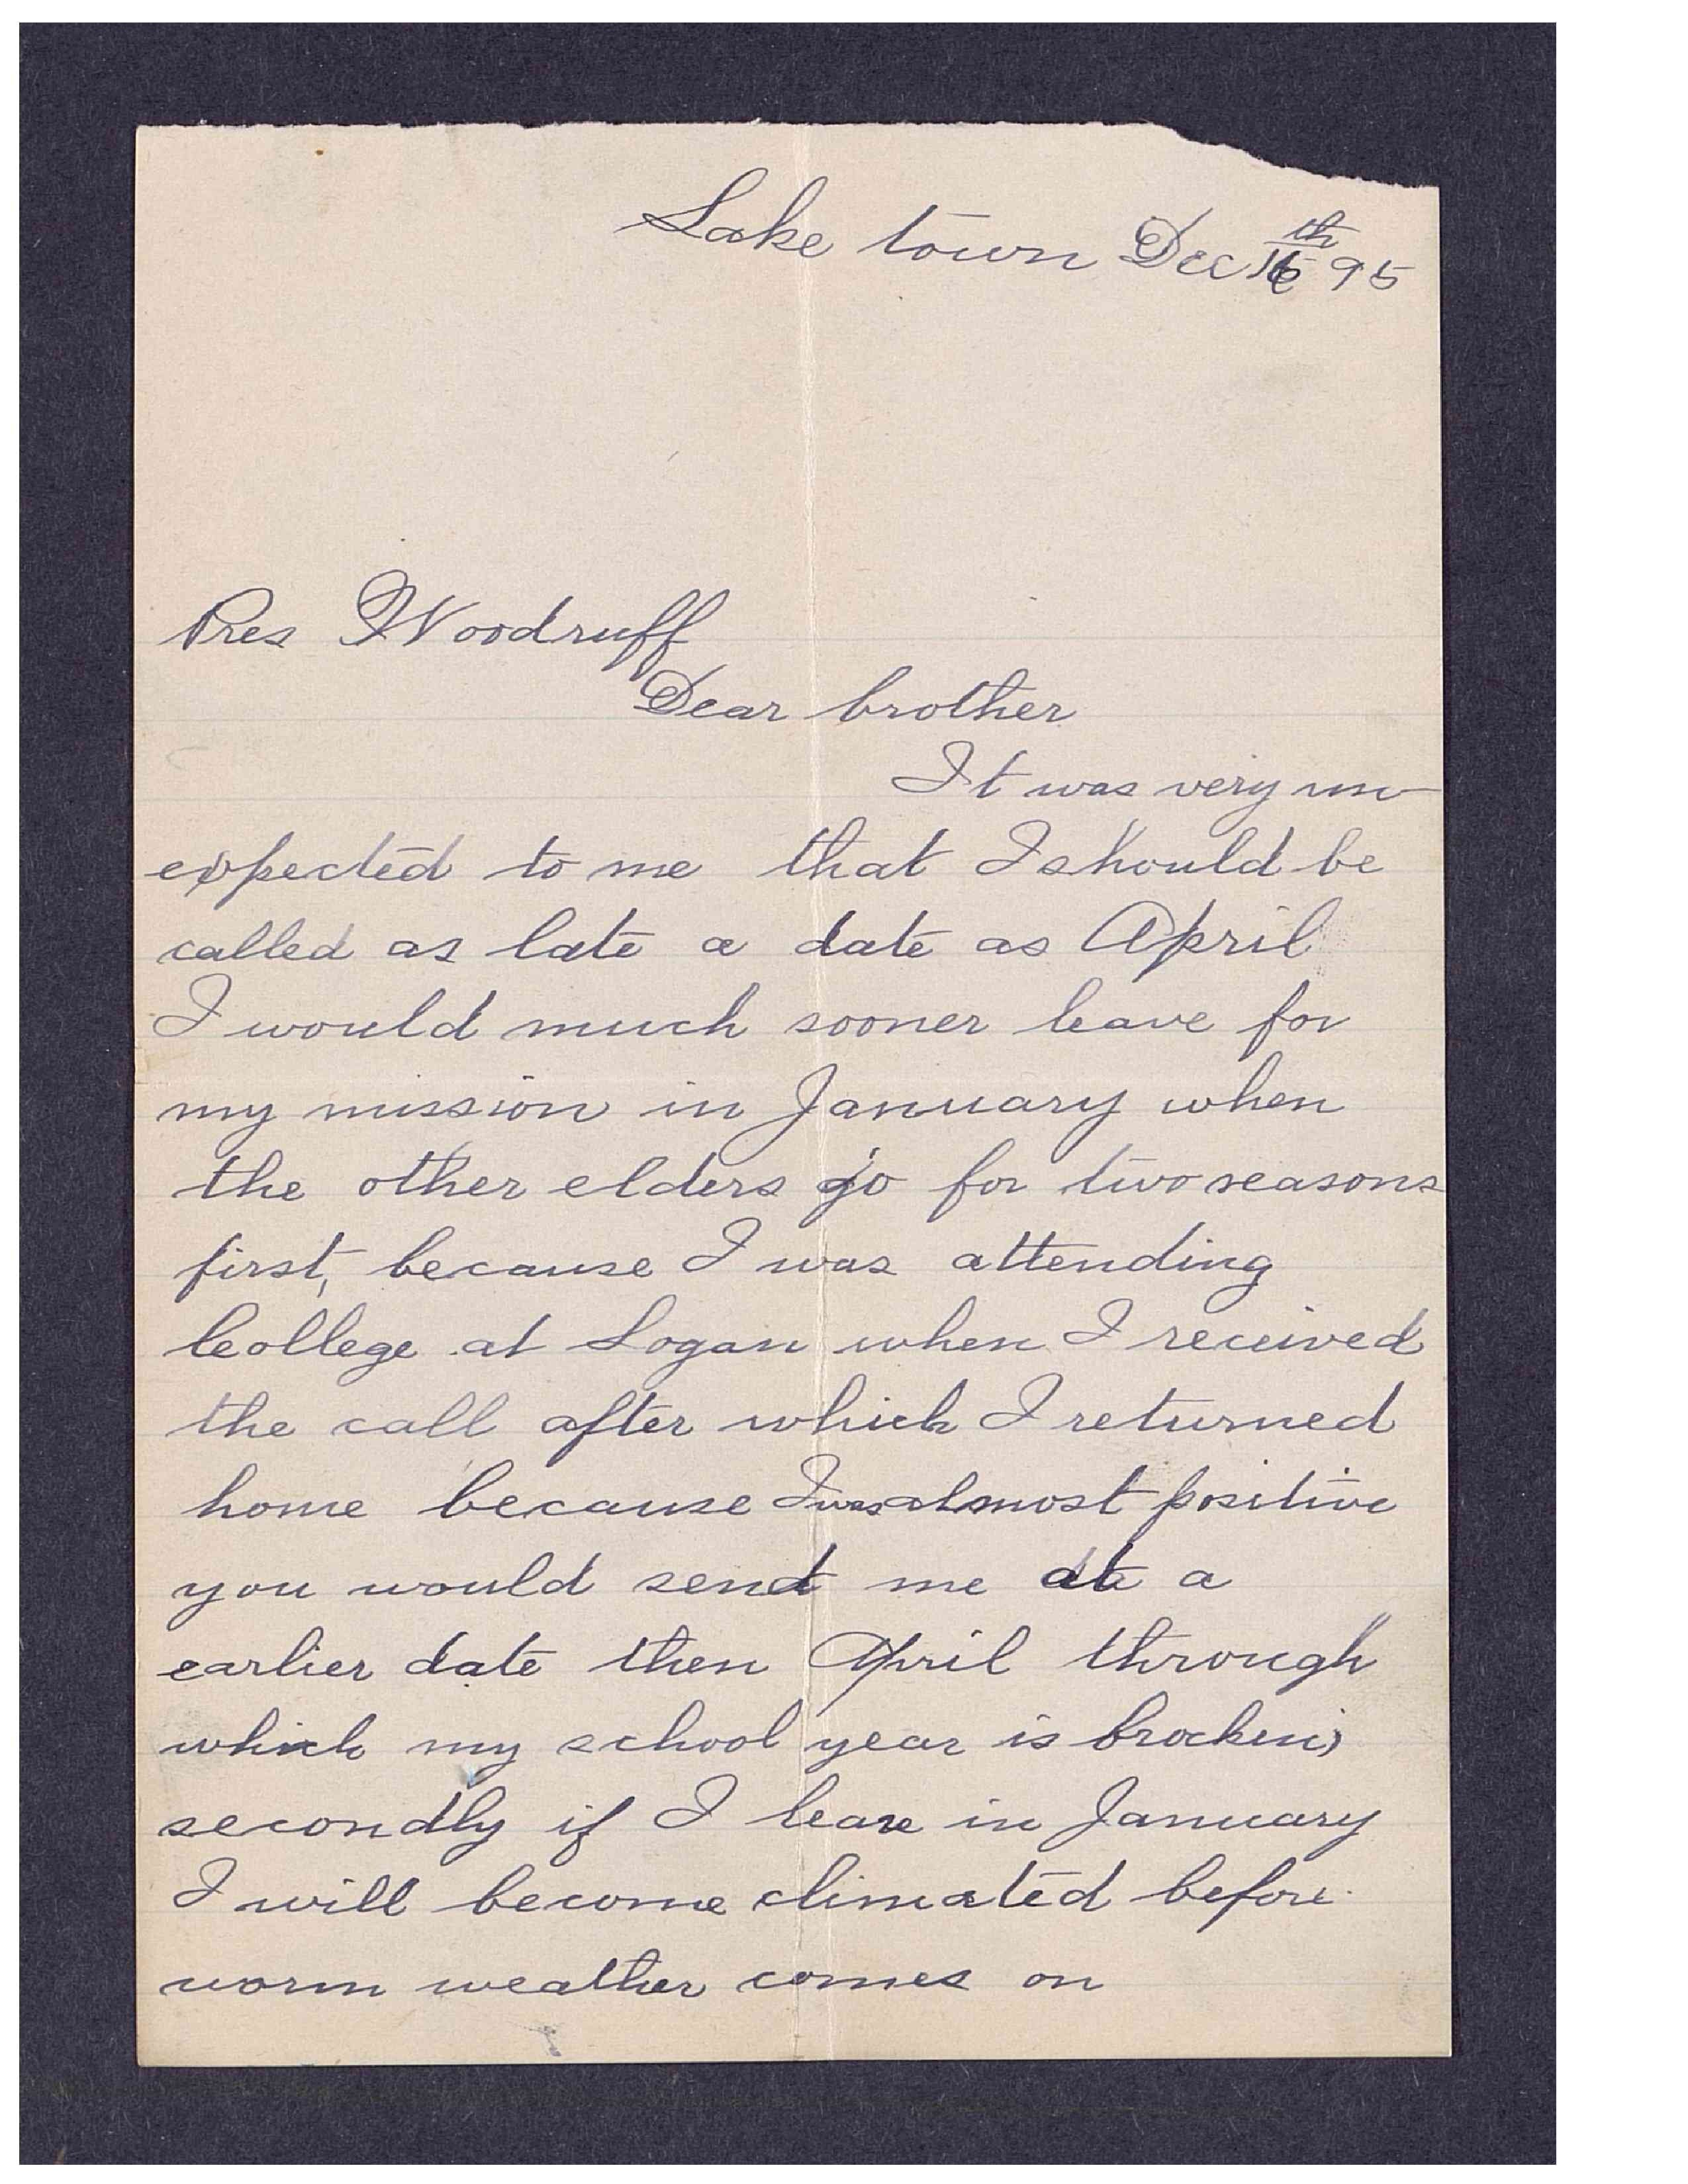 Lake town Dec 16th 95
Pres W Woodruff
Dear brother
It was very un-
expected to me that I should be
called as late a date as April
I would much sooner leave for
my mission in January when
the other elders go for two seasons
first, because I was attending
College at Logan when I received
the call after which I returned
home because I was almost positive
you would send me at a
earlier date then April through
which my school year is brocken;
secondly if I leave in January
I will become climated before
worm weather comes on